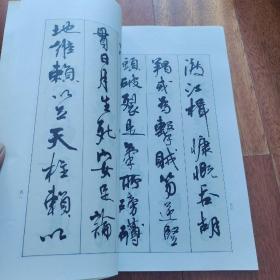 渡江楫慷慨吞胡
羯或為擊賊笏逆豎
頭破裂是氣所磅礴
貫日月生死安足論
地維賴以立天柱賴以